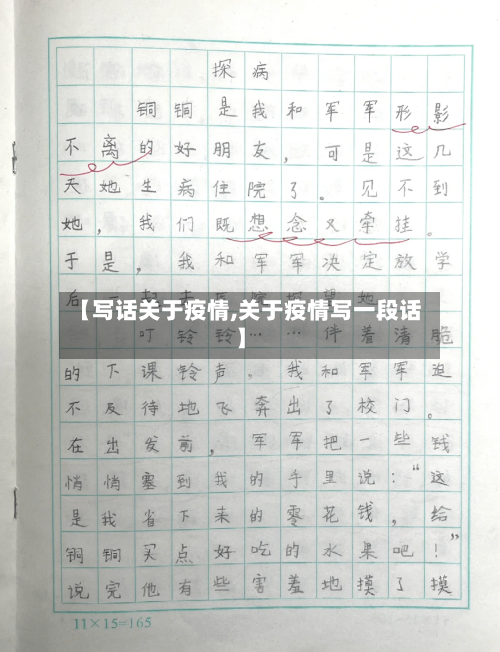 探病
铜铜是我和军军形影
不离的好朋友，可是这几
天她生病住院了。见不到
她，我们既想念又牵挂。
于是，我和军军决定放学
后一起
【写话关于疫情,关于疫情写一段话
】
叮铃铃……伴着清脆
的下课铃声，我和军军迫
不及待地飞奔出了校门。
在出发前，军军把一些钱
悄悄塞到我的手里说：“这
是我省下来的零花钱，给
铜铜买点好吃的水果吧！”
说完他有些害羞地摸了摸
11×15=165